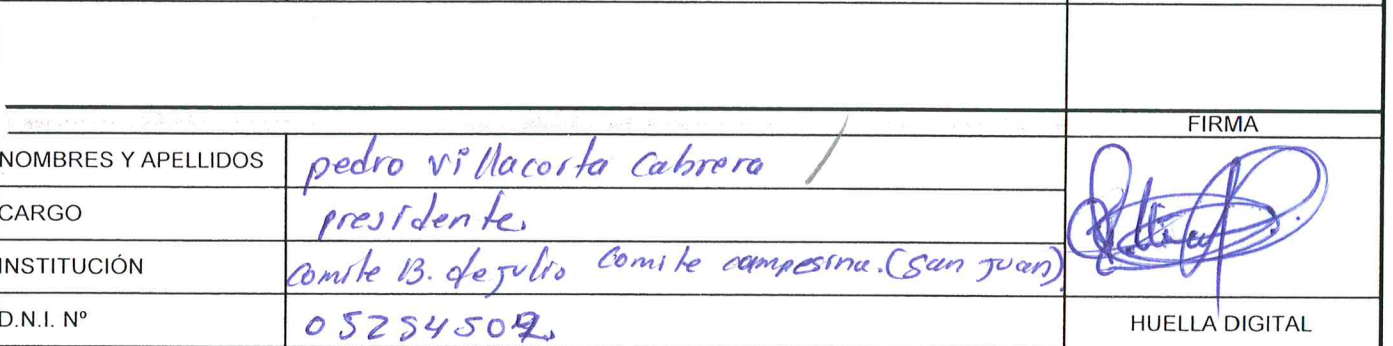 FIRMA
NOMBRES Y APELLIDOS pedro villacorta Cabrera
CARGO presidente.
INSTITUCIÓN comite 13. de julio comite campesina. (San Juan)
D.N.I. Nº
HUELLA DIGITAL